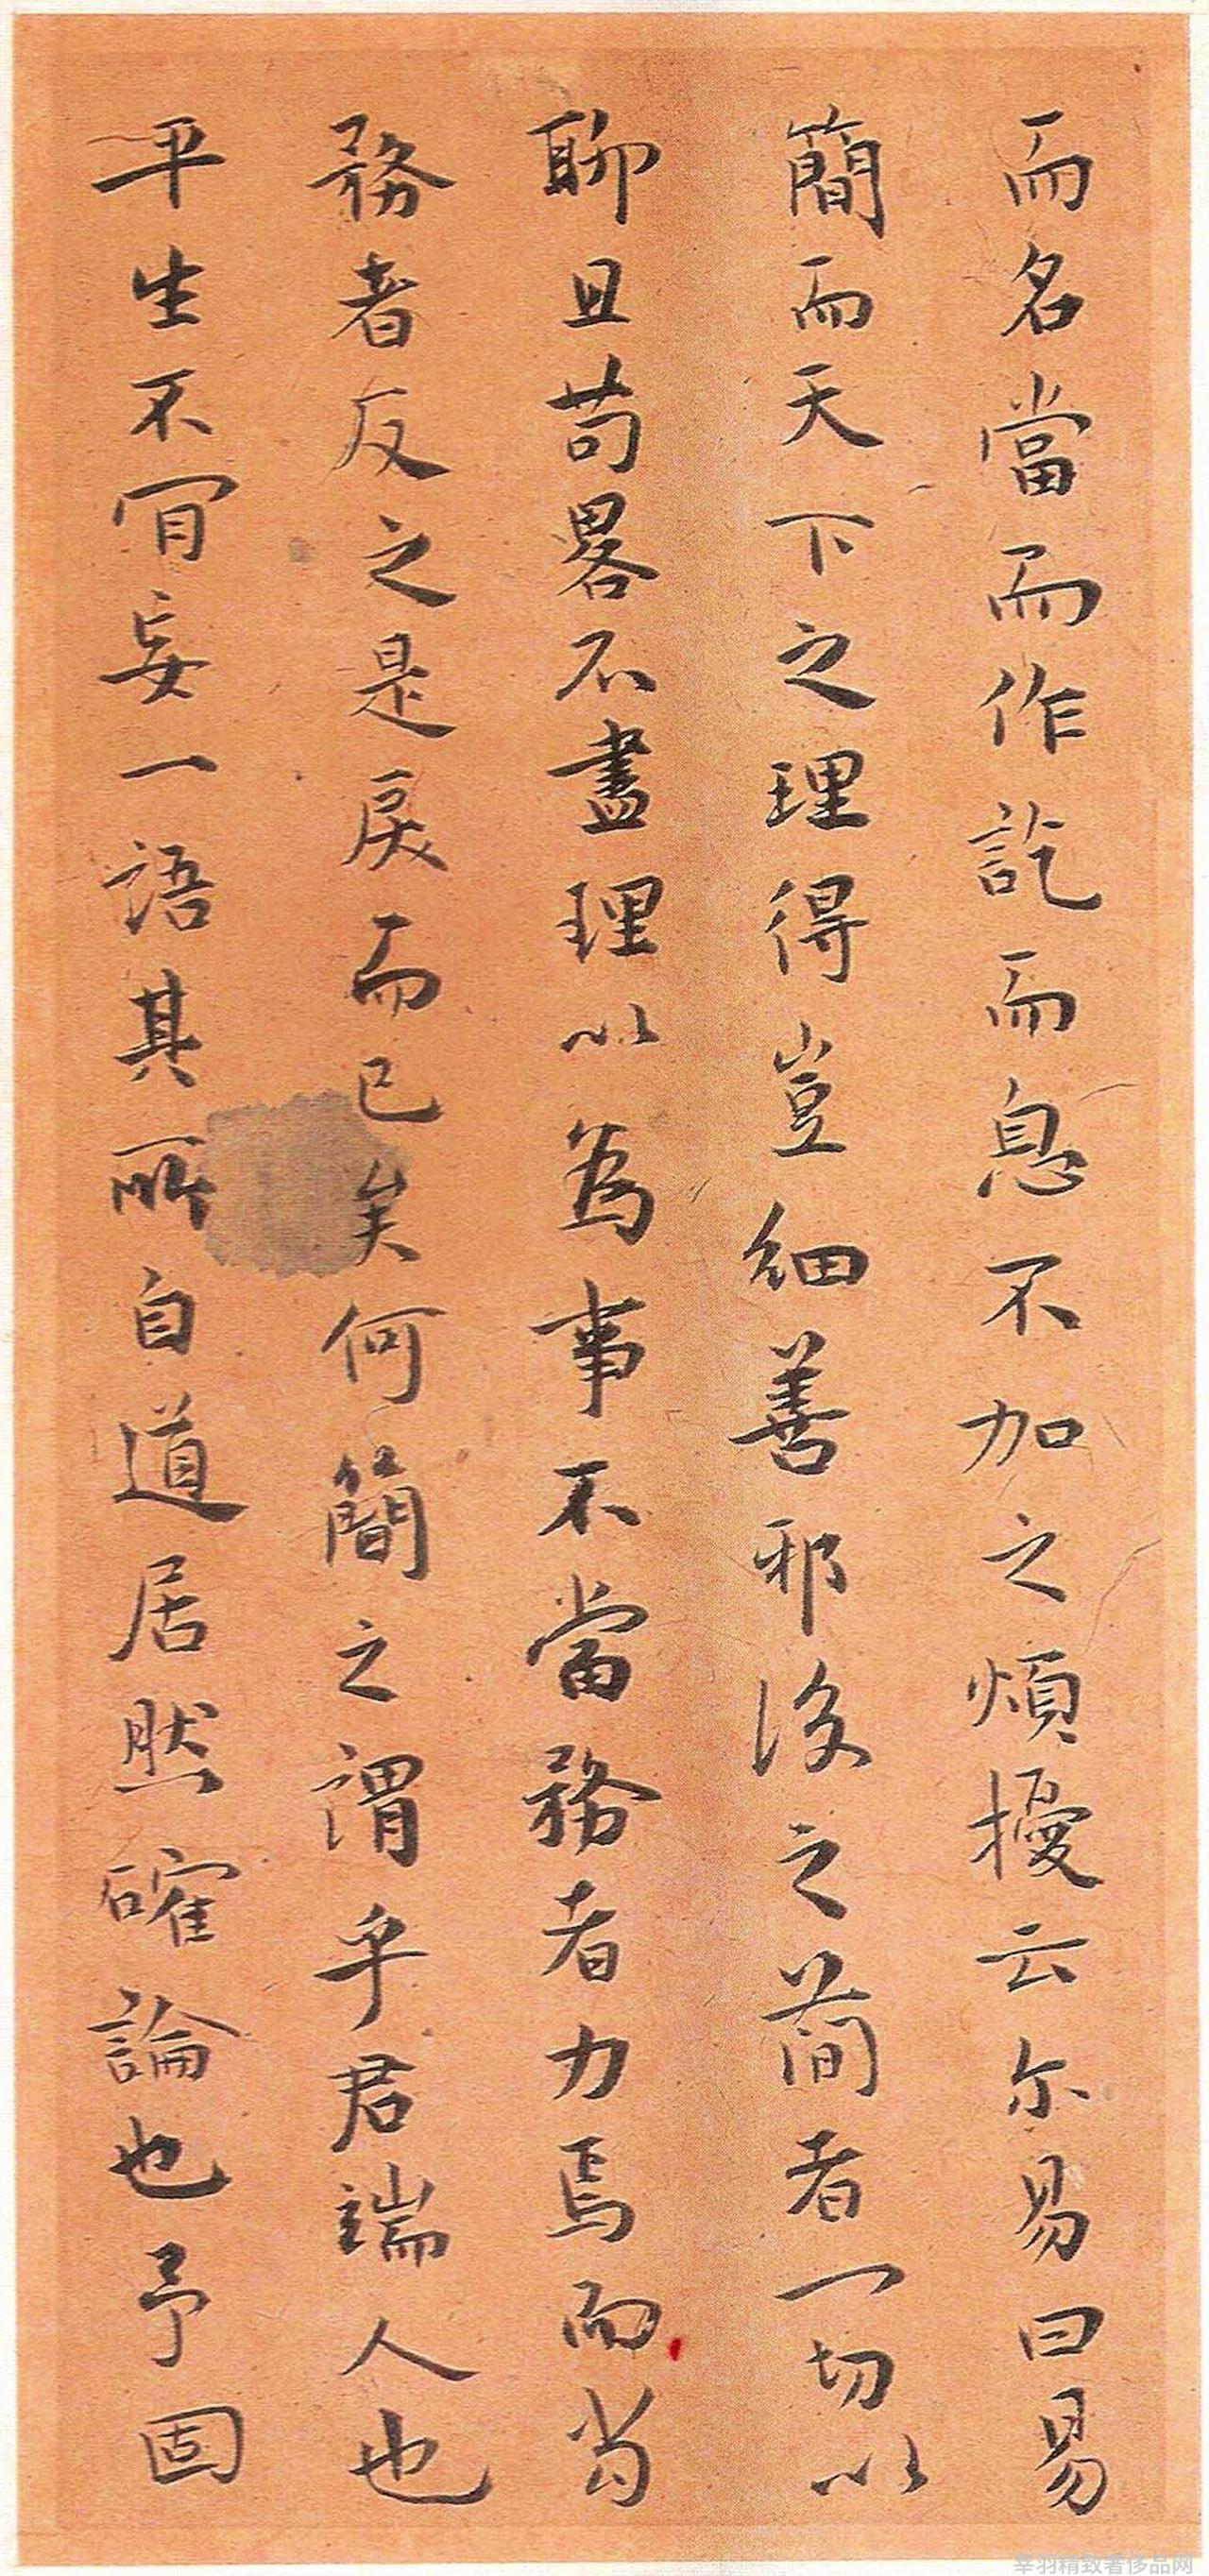 而名當而作訖而息不加之煩擾云尔易曰易
簡而天下之理得豈細善邪後之簡者一切以
聊且苟畧不盡理以為事不當務者力焉而當
務者反之是戾而已矣何簡之謂乎君端人也
平生不肎妄一語其所自道居然確論也予固
幸羽精致奢侈品网